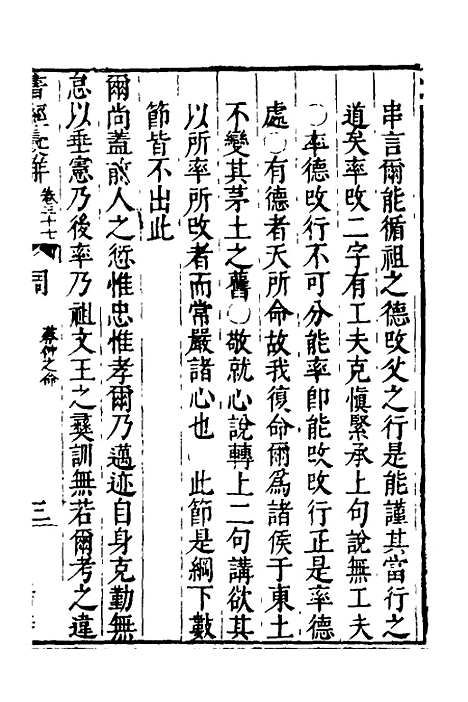 串言爾能循祖之德攺父之行是能謹其當行之
道矣率攺二字有工夫克愼緊承上句說無工夫
○率德攺行不可分能率卽能攺攺行正是率德
處○有德者天所命故我復命爾爲諸侯于東土
不變其茅土之舊○敬就心說轉上二句講欲其
以所率所攺者而常嚴諸心也　此節是綱下數
節皆不出此
爾尚蓋前人之愆惟忠惟孝爾乃邁迹自身克勤無
怠以垂憲乃後率乃祖文王之彝訓無若爾考之違
卷三十七　周　蔡仲之命　三